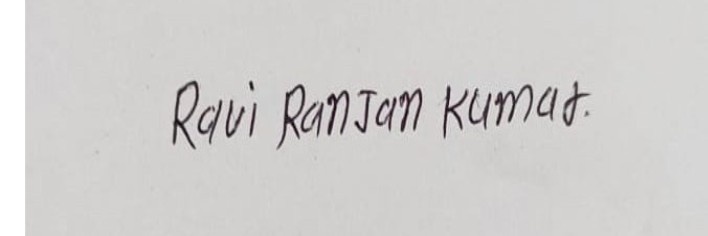 Ravi Ranjan Kumar.